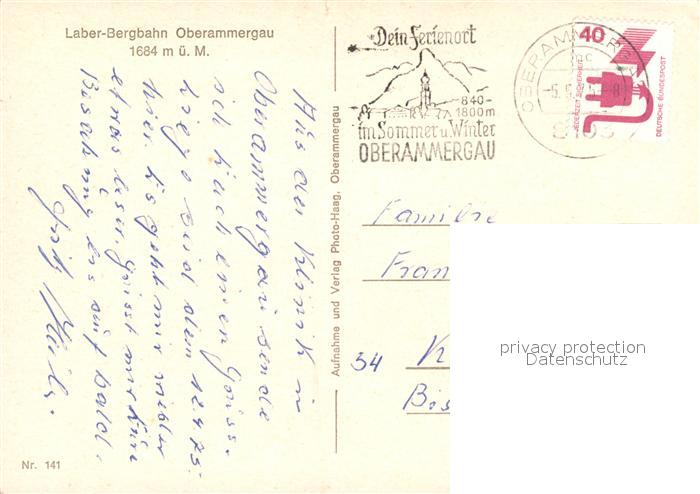 Laber-Bergbahn Oberammergau
1684 m ü. M.
Aus der Klinik in
Oberammergau sende
ich Euch einen Gruss.
seid dem 12.4.75
hier. Es geht mir wieder
etwas besser. Grüsst mir
Bis auf bald.
Nr. 141
Aufnahme und Verlag Photo-Haag, Oberammergau
Dein Ferienort
840-
1800 m
im Sommer u. Winter
OBERAMMERGAU
OBERAMMER
40
JEDERZEIT SICHERHEIT
DEUTSCHE BUNDESPOST
Familie
Fran
34 K
Bis
privacy protection
Datenschutz